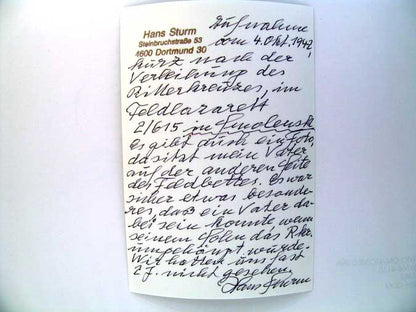 Hans Sturm
Steinbruchstraße 53
4600 Dortmund 30
Aufnahme
vom 4. Okt. 1942,
kurz nach der
Verleihung des
Ritterkreuzes, im
Feldlazarett
2/615 in Smolensk
Es gibt auch ein Foto,
da sitzt mein Vater
auf der anderen Seite
des Feldbettes. Es war
sicher etwas besonde-
res, daß ein Vater da-
bei sein konnte wenn
seinem Sohn das R.kr.
umgehängt wurde.
Wir hatten uns fast
2 J. nicht gesehen.
Hans Sturm